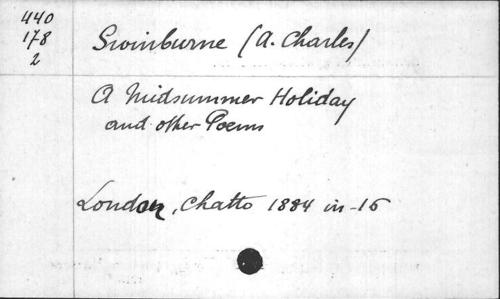 440
178
2
Swinburne (A. Charles)
A Midsummer Holiday
and other Poems
London, Chatto 1884 in-16